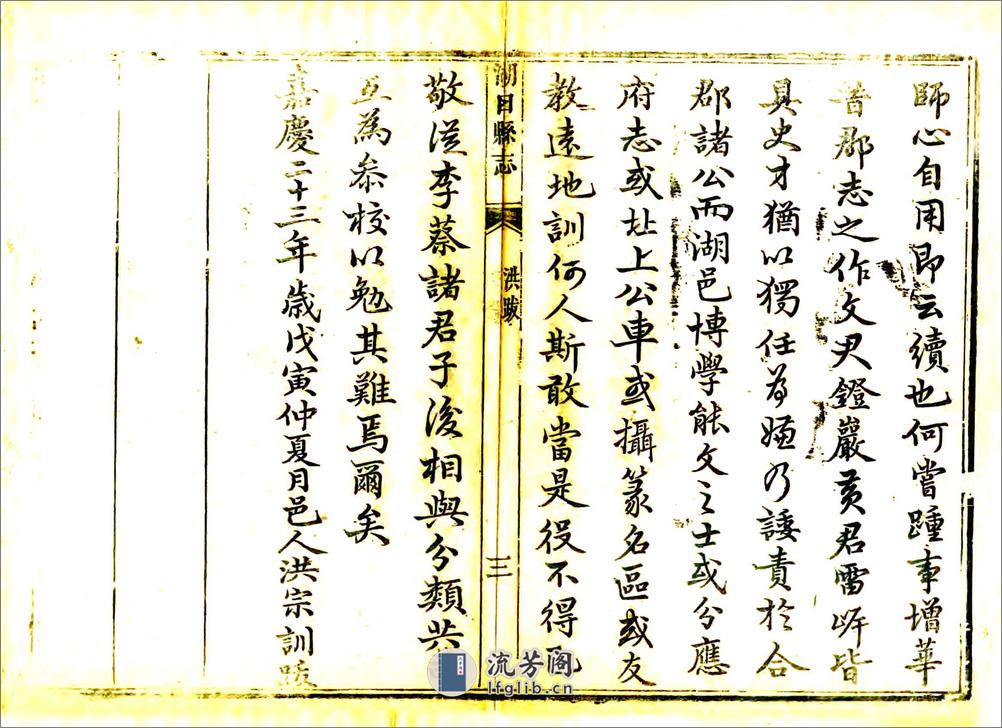 師心自用即云續也何嘗踵事增華
昔郡志之作文尹鐙巖黃君雷岸皆
具史才猶以獨任為嫌乃諉責於合
郡諸公而湖邑博學能文之士或分應
府志或赴上公車或攝篆名區或友
教遠地訓何人斯敢當是役不得已
湖口縣志
洪跋
三
敬從李蔡諸君子後相與分類共
互為參校以勉其難焉爾矣
嘉慶二十三年歲戊寅仲夏月邑人洪宗訓跋
流芳阁
lfglib.cn